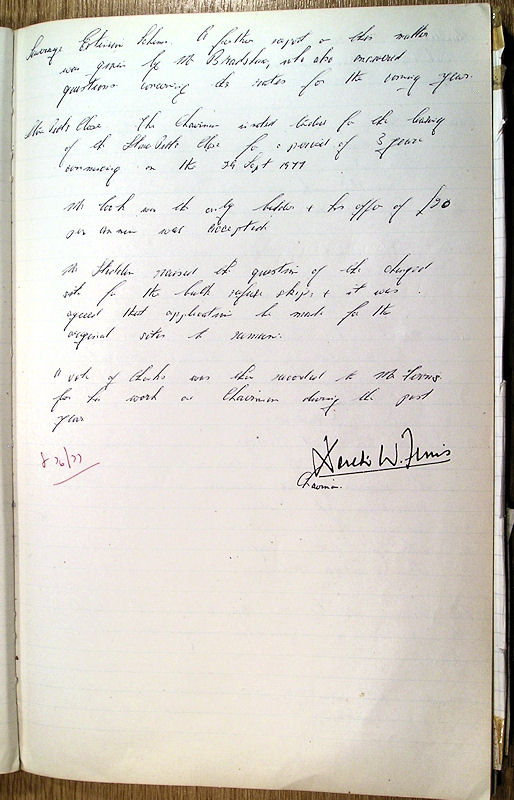 Sewerage Extension Scheme. A further report on this matter
was given by Mr Bradshaw, who also answered
questions concerning the rates for the coming year.
Close The Chairman invited tenders for the letting
of the Close for a period of 3 years
commencing on the 29 Sept 1977
Mr was the only bidder & his offer of £20
per annum was accepted
Mr raised the question of the changed
site for the bulk refuse skips & it was
agreed that application be made for the
original sites to remain.
A vote of thanks was then recorded to Mr Ferris
for his work as Chairman during the past
year
W. Ferris
Chairman.